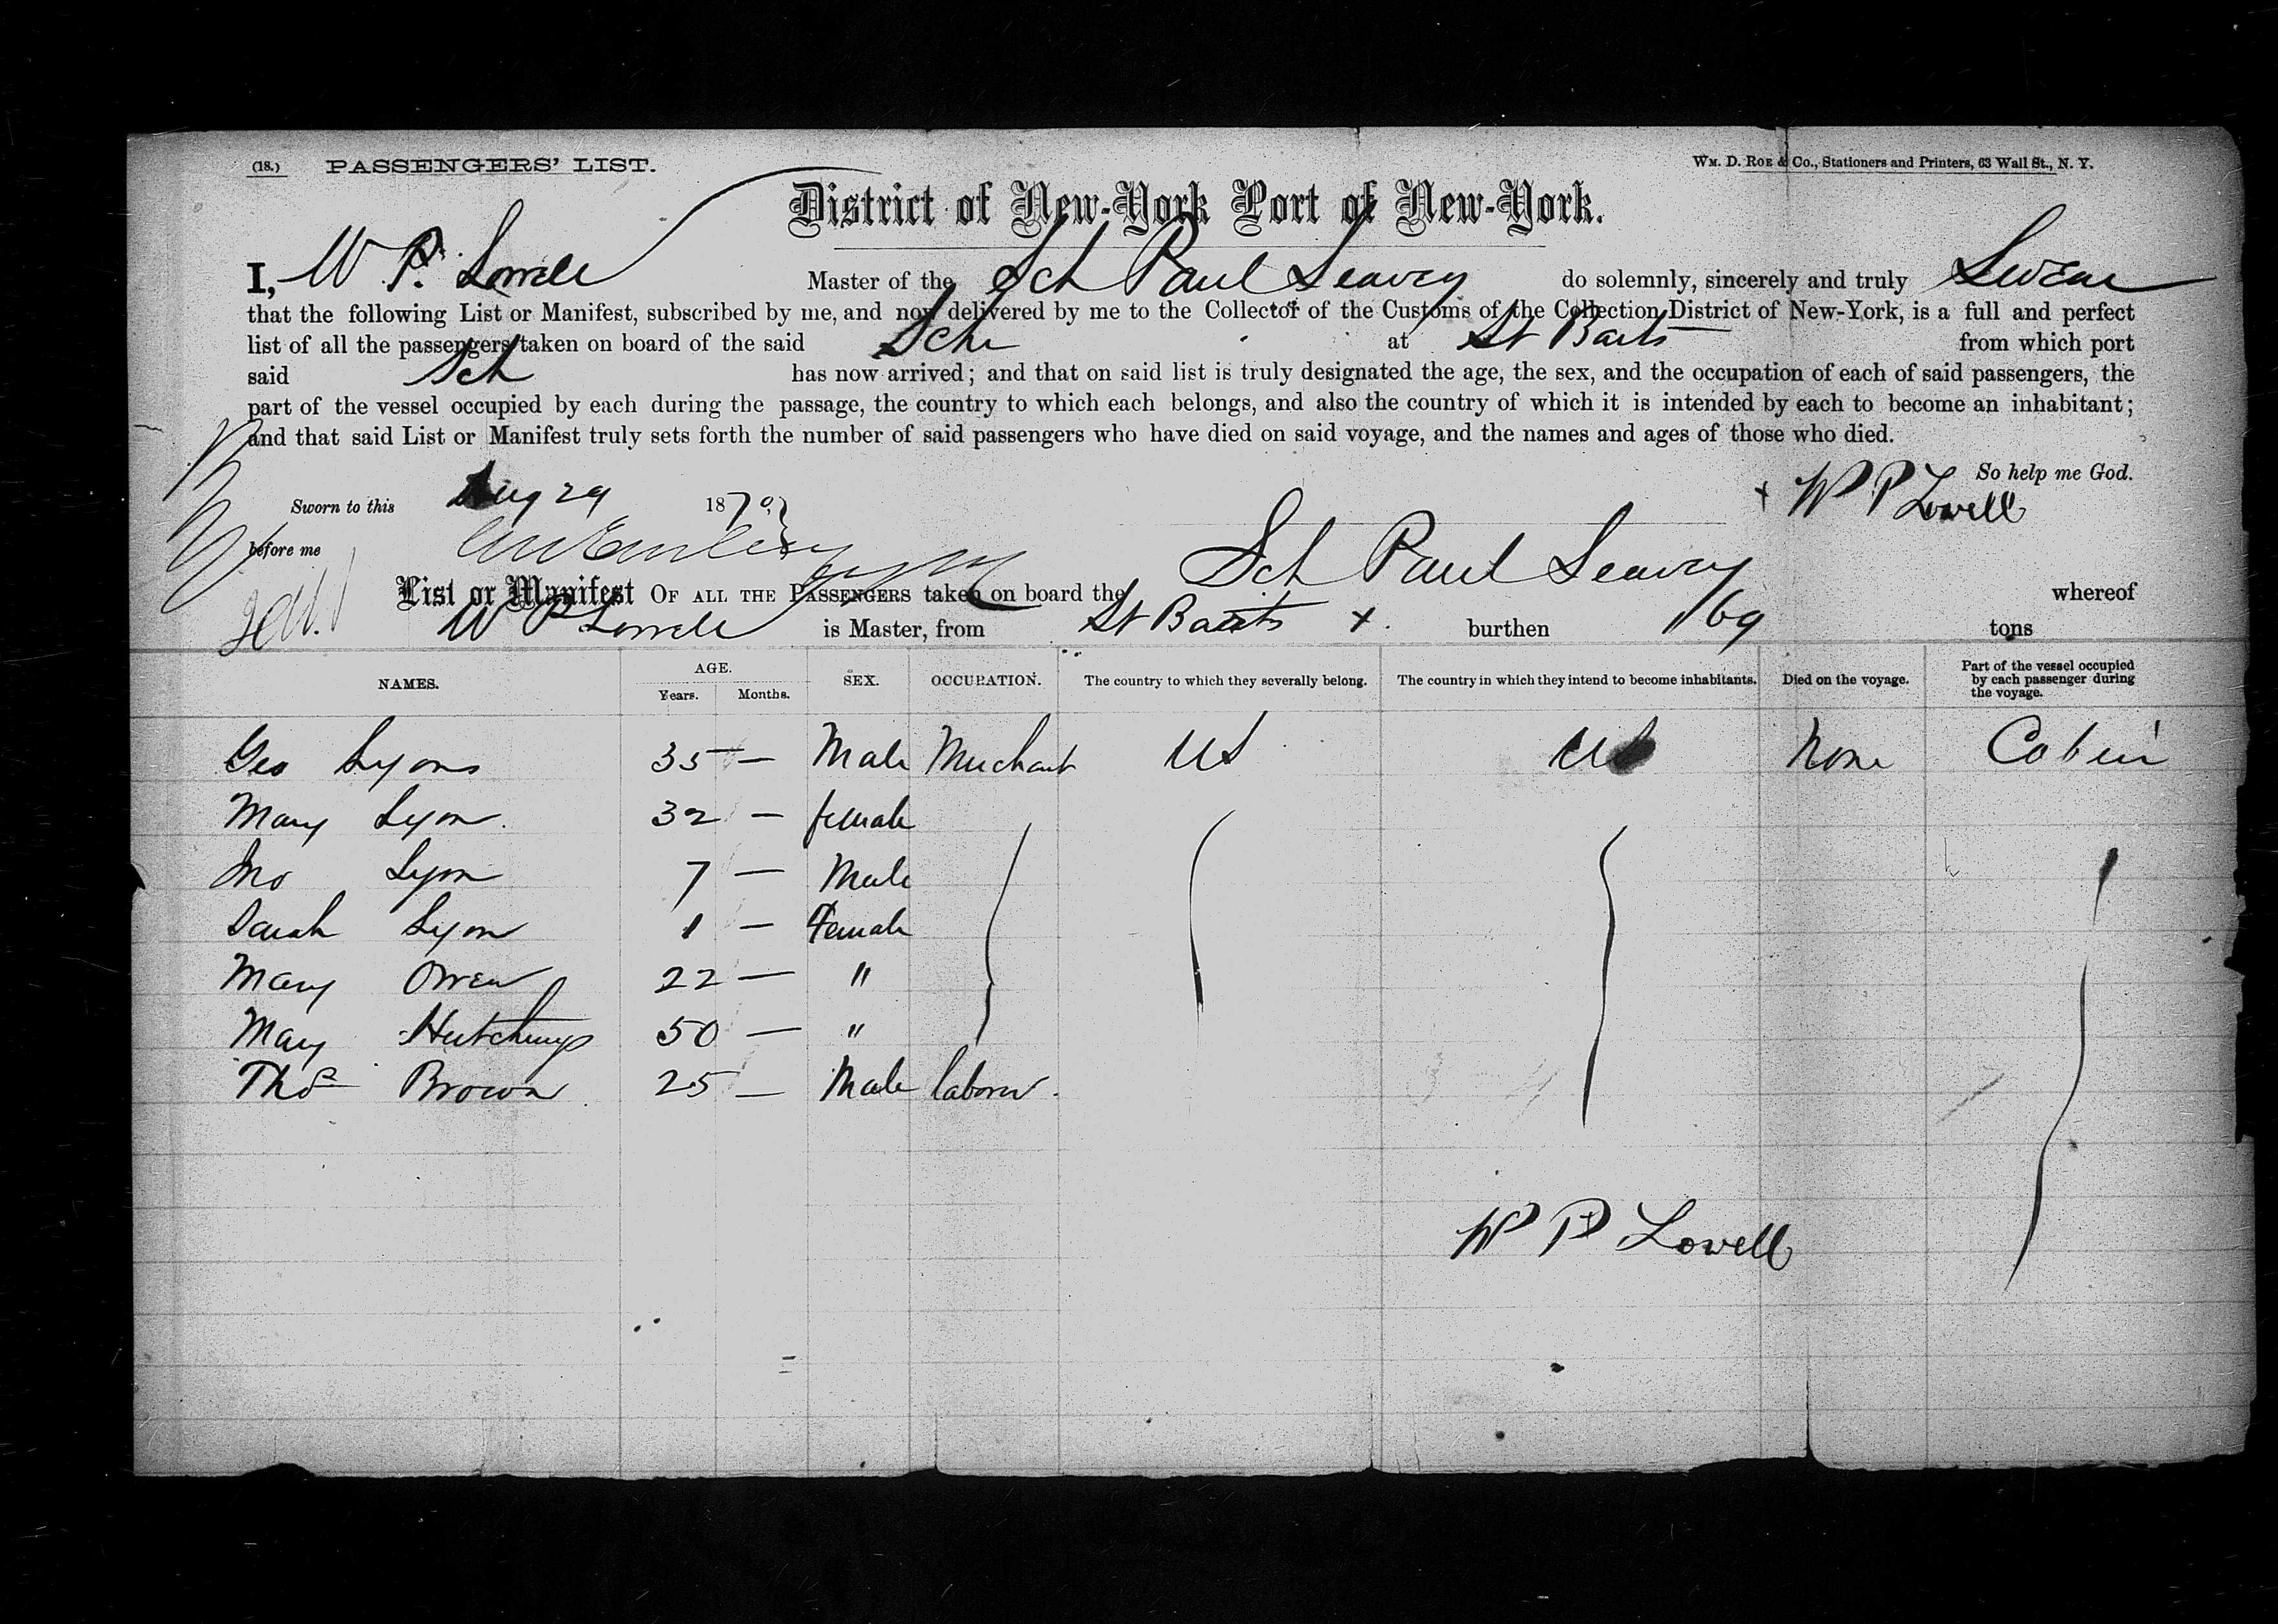 (18.) PASSENGERS' LIST. Wm. D. Roe & Co., Stationers and Printers, 63 Wall St., N. Y.
District of New-York Port of New-York.
I, W P. Lowell Master of the Sch Paul Seavey do solemnly, sincerely and truly Swear
that the following List or Manifest, subscribed by me, and now delivered by me to the Collector of the Customs of the Collection District of New-York, is a full and perfect
list of all the passengers taken on board of the said Schr at St Barts from which port
said Sch has now arrived; and that on said list is truly designated the age, the sex, and the occupation of each of said passengers, the
part of the vessel occupied by each during the passage, the country to which each belongs, and also the country of which it is intended by each to become an inhabitant;
and that said List or Manifest truly sets forth the number of said passengers who have died on said voyage, and the names and ages of those who died.
So help me God.
Sworn to this Aug 29 1870 W P Lowell
before me
List or Manifest OF ALL THE PASSENGERS taken on board the Sch Paul Seavey whereof
W P Lowell is Master, from St Barts x. burthen 169 tons
NAMES. AGE. Years. Months. SEX. OCCUPATION. The country to which they severally belong. The country in which they intend to become inhabitants. Died on the voyage. Part of the vessel occupied by each passenger during the voyage.
Geo Lyons 35 — Male Merchant US US None Cabin
Mary Lyon. 32 — female
Jno Lyon 7 — Male
Sarah Lyon 1 — Female
Mary Owen 22 — "
Mary Hutchings 50 — "
Thos Brown 25 — Male laborer.
W P Lowell